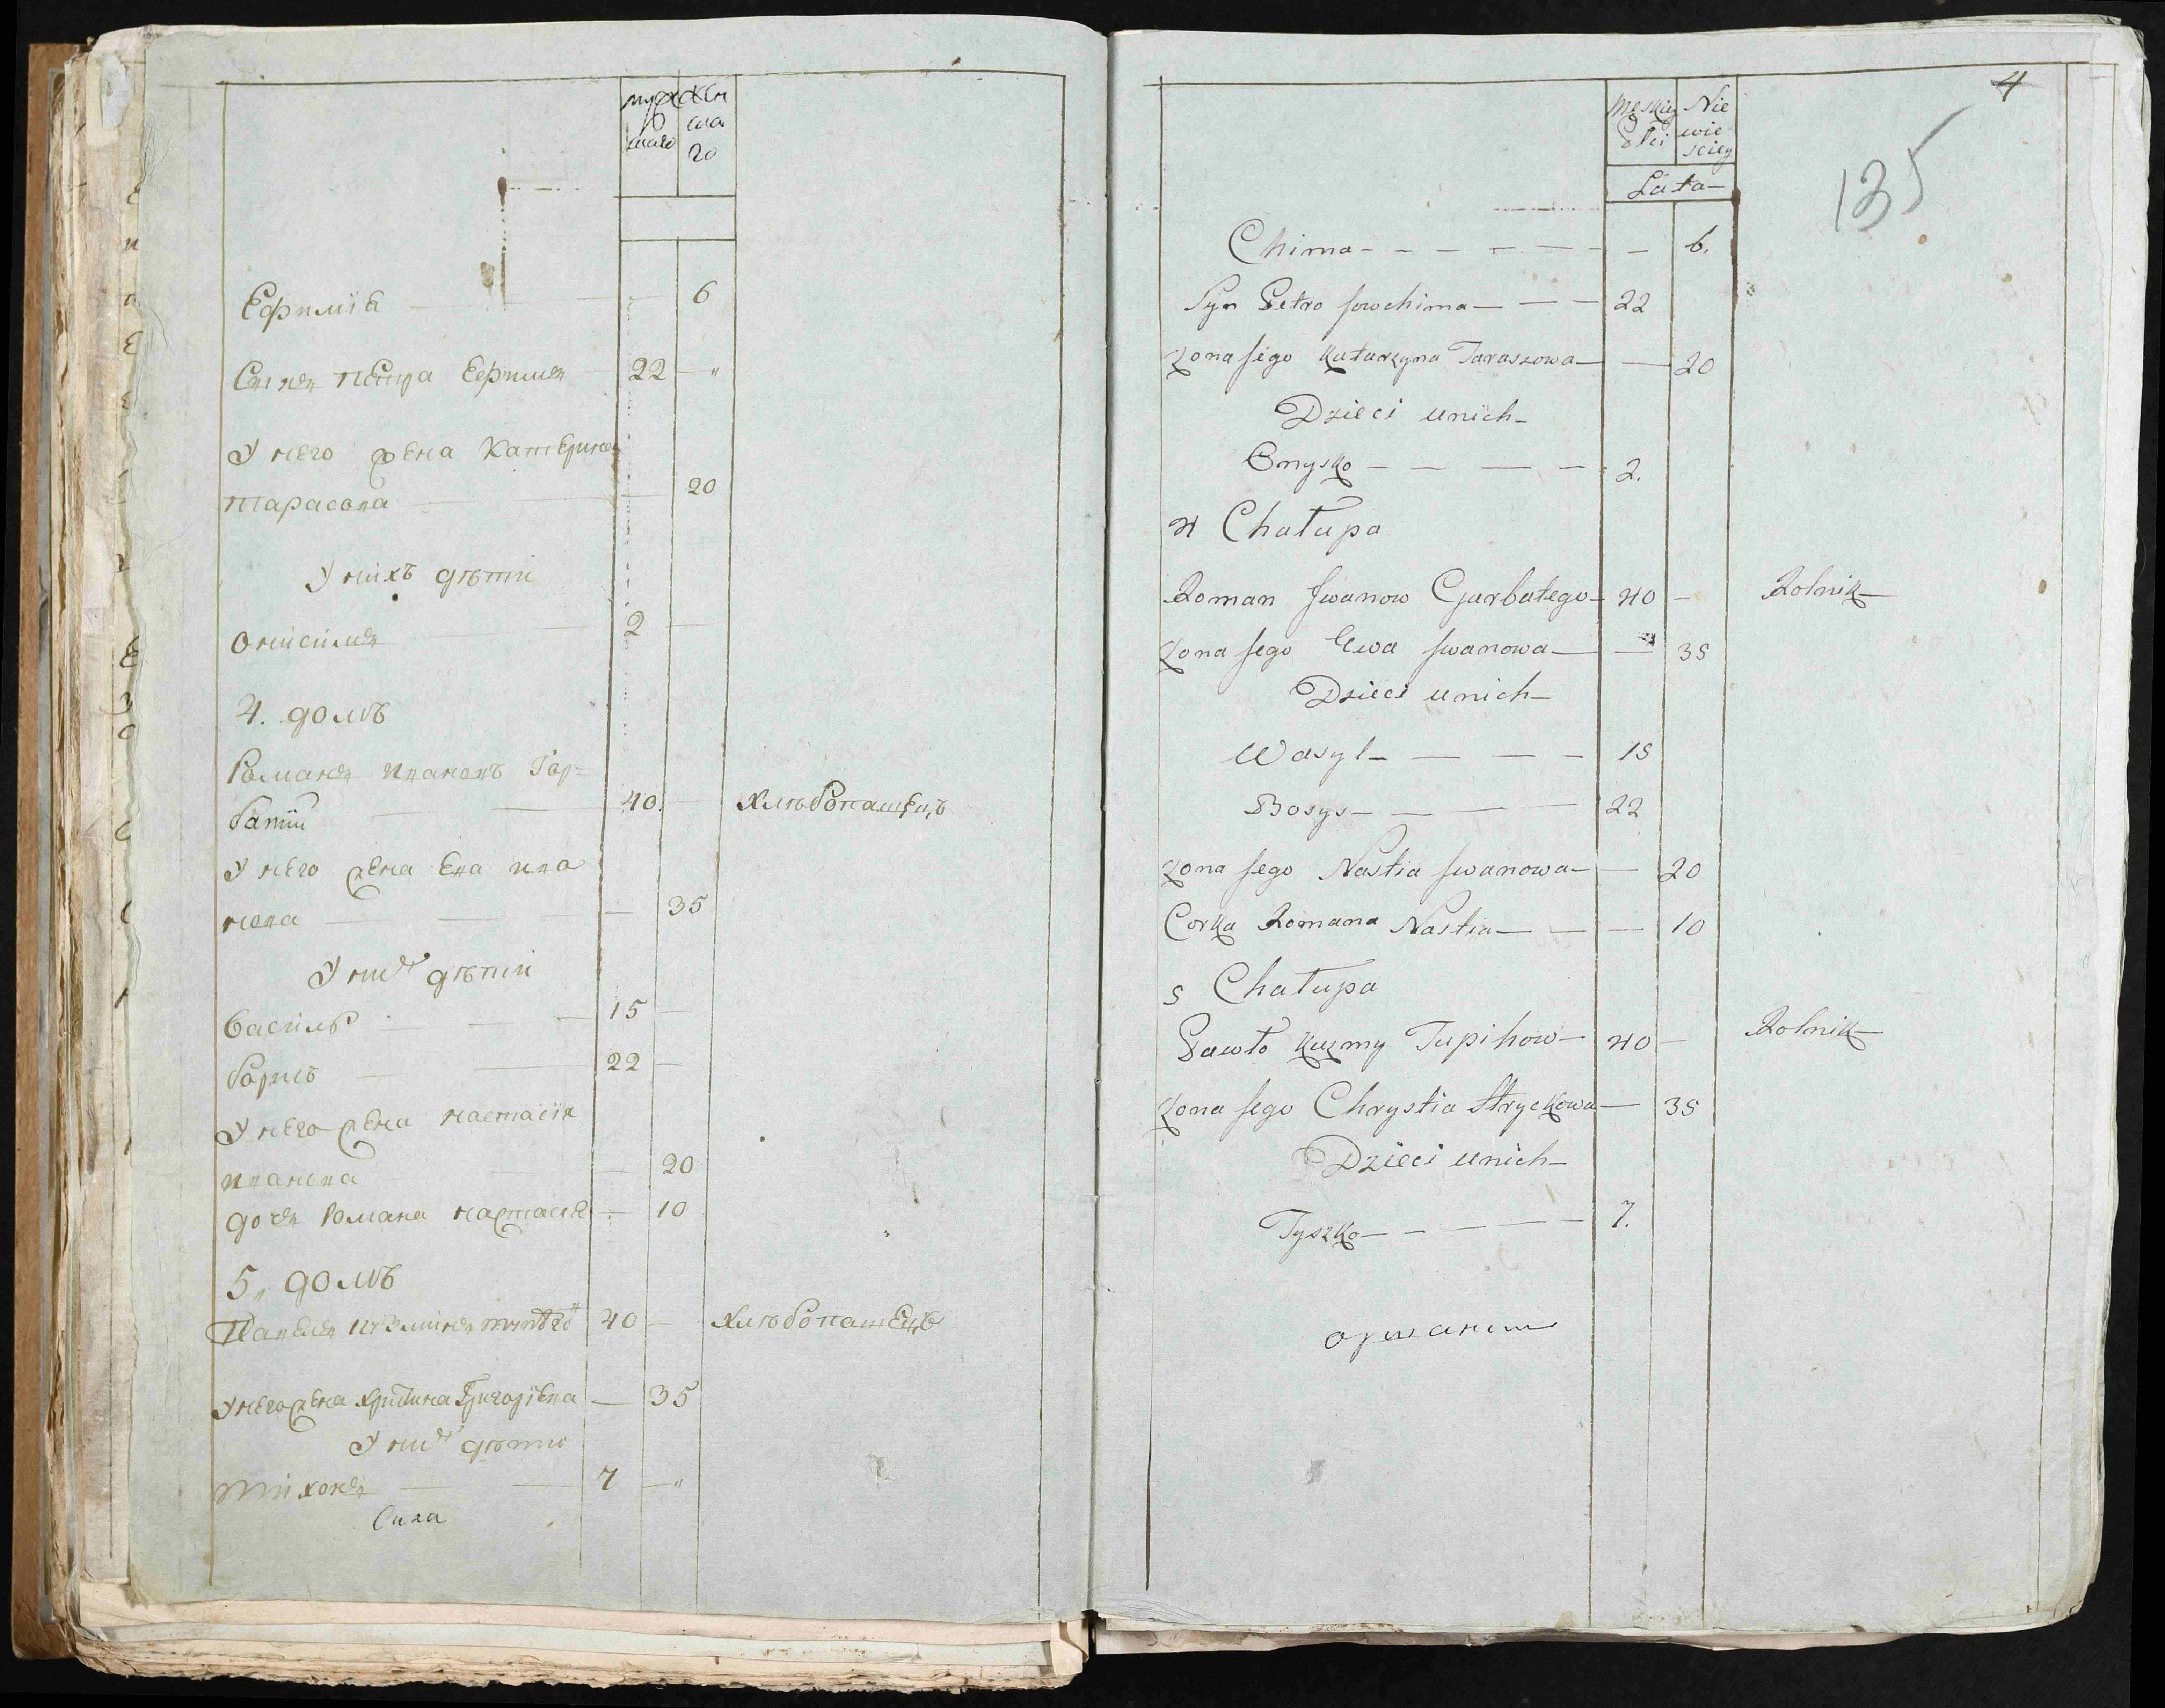 мужескаго
женскаго
Ефимія — 6
Синъ Петра Ефимъ 22 — "
У него жена Катерина
Тарасова — 20
У нихъ дѣти
Онисимъ 2 —
4. домъ
Романъ Ивановъ Гор=
батій — 40. — хлѣбопашецъ
У него жена Ева Ива
нова — 35
У них дѣти
Василь — 15 —
Борисъ — 22 —
У него жена Настасія
Иванова — 20
дочъ Романа Настасія — 10
5, домъ
Павелъ Кузминъ 40 — хлѣбопашецъ
У него жена Христина Григорієва — 35
У них дѣти
Тихонъ — 7 — "
4
135
Męskiey Płci
Nie wie sciey
Lata
Chima — 6.
Syn Petro Jowchima — 22
Zona Jego Katarzyna Taraszowa — 20
Dzieci unich
Onysko — 2.
4 Chałupa
Roman Jwanow Garbatego 40 — Rolnik
Zona Jego Ewa Jwanowa — 35
Dzieci unich
Wasyl — 15
Borys — 22
Zona Jego Nastia Jwanowa — 20
Corka Romana Nastia — 10
5 Chałupa
Pawło Kuzmy Tupihow 40 — Rolnik
Zona Jego Chrystia Hryckowa — 35
Dzieci unich
Tyszko — 7.